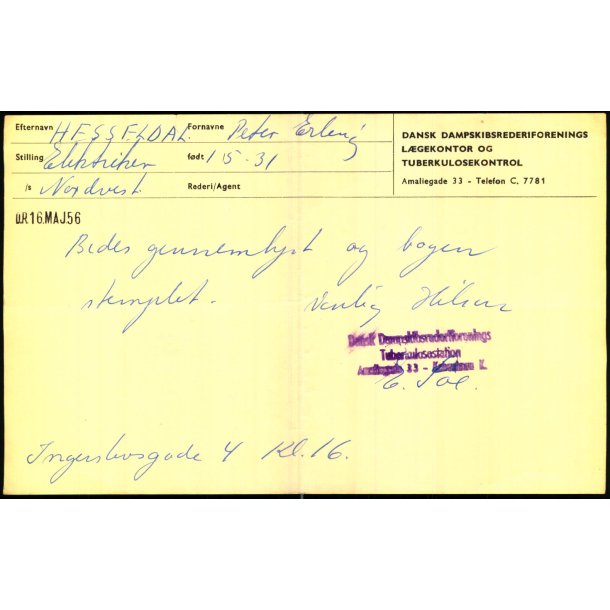 Efternavn HESSELDAL Fornavne Peter Erling
Stilling Elektriker født 1 5 - 31
/s Nordvest. Rederi/Agent
DANSK DAMPSKIBSREDERIFORENINGS
LÆGEKONTOR OG
TUBERKULOSEKONTROL
Amaliegade 33 - Telefon C, 7781
16.MAJ.56
Bedes gennemlyst og bogen
stemplet. Venlig Hilsen
Dansk Dampskibsrederiforenings
Tuberkulosestation
Amaliegade 33 - København K.
Ingerslevsgade 4 Kl. 16.